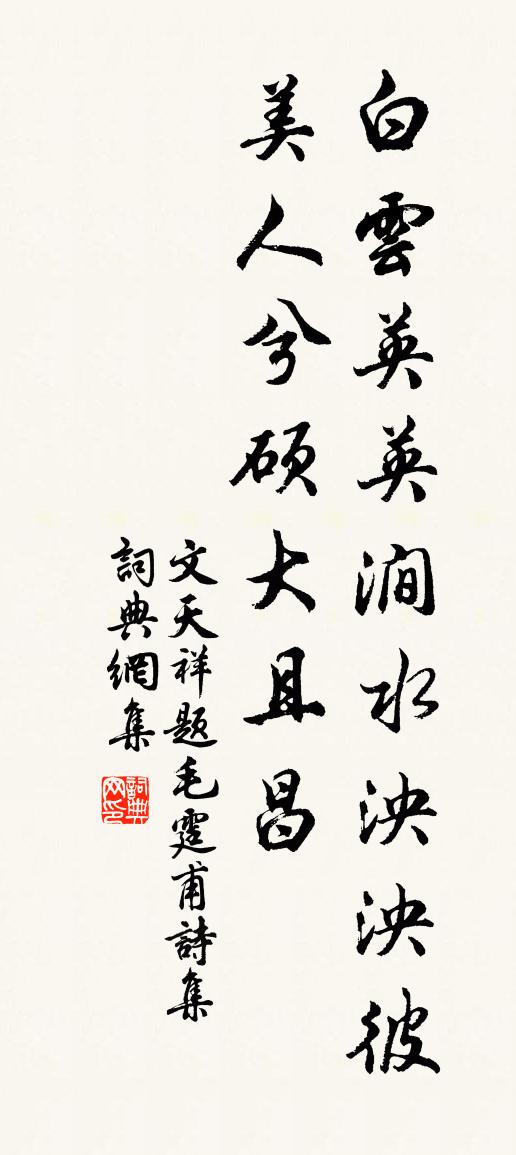 白雲英英澗水泱泱彼
美人兮碩大且昌
文天祥題毛霆甫詩集
詞典網集
詞典
网印